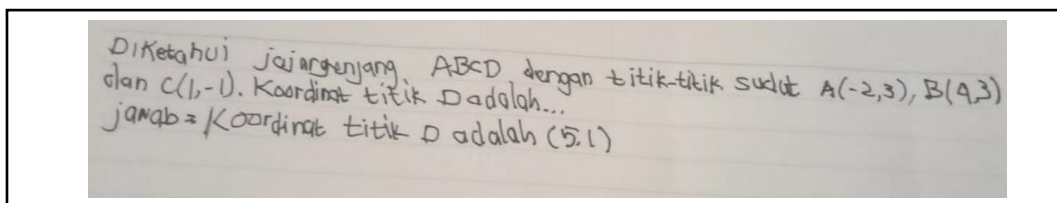 Diketahui jajargenjang ABCD dengan titik-titik sudut A(-2,3), B(4,3)
dan C(1,-1). Koordinat titik D adalah...
jawab = Koordinat titik D adalah (5.1)